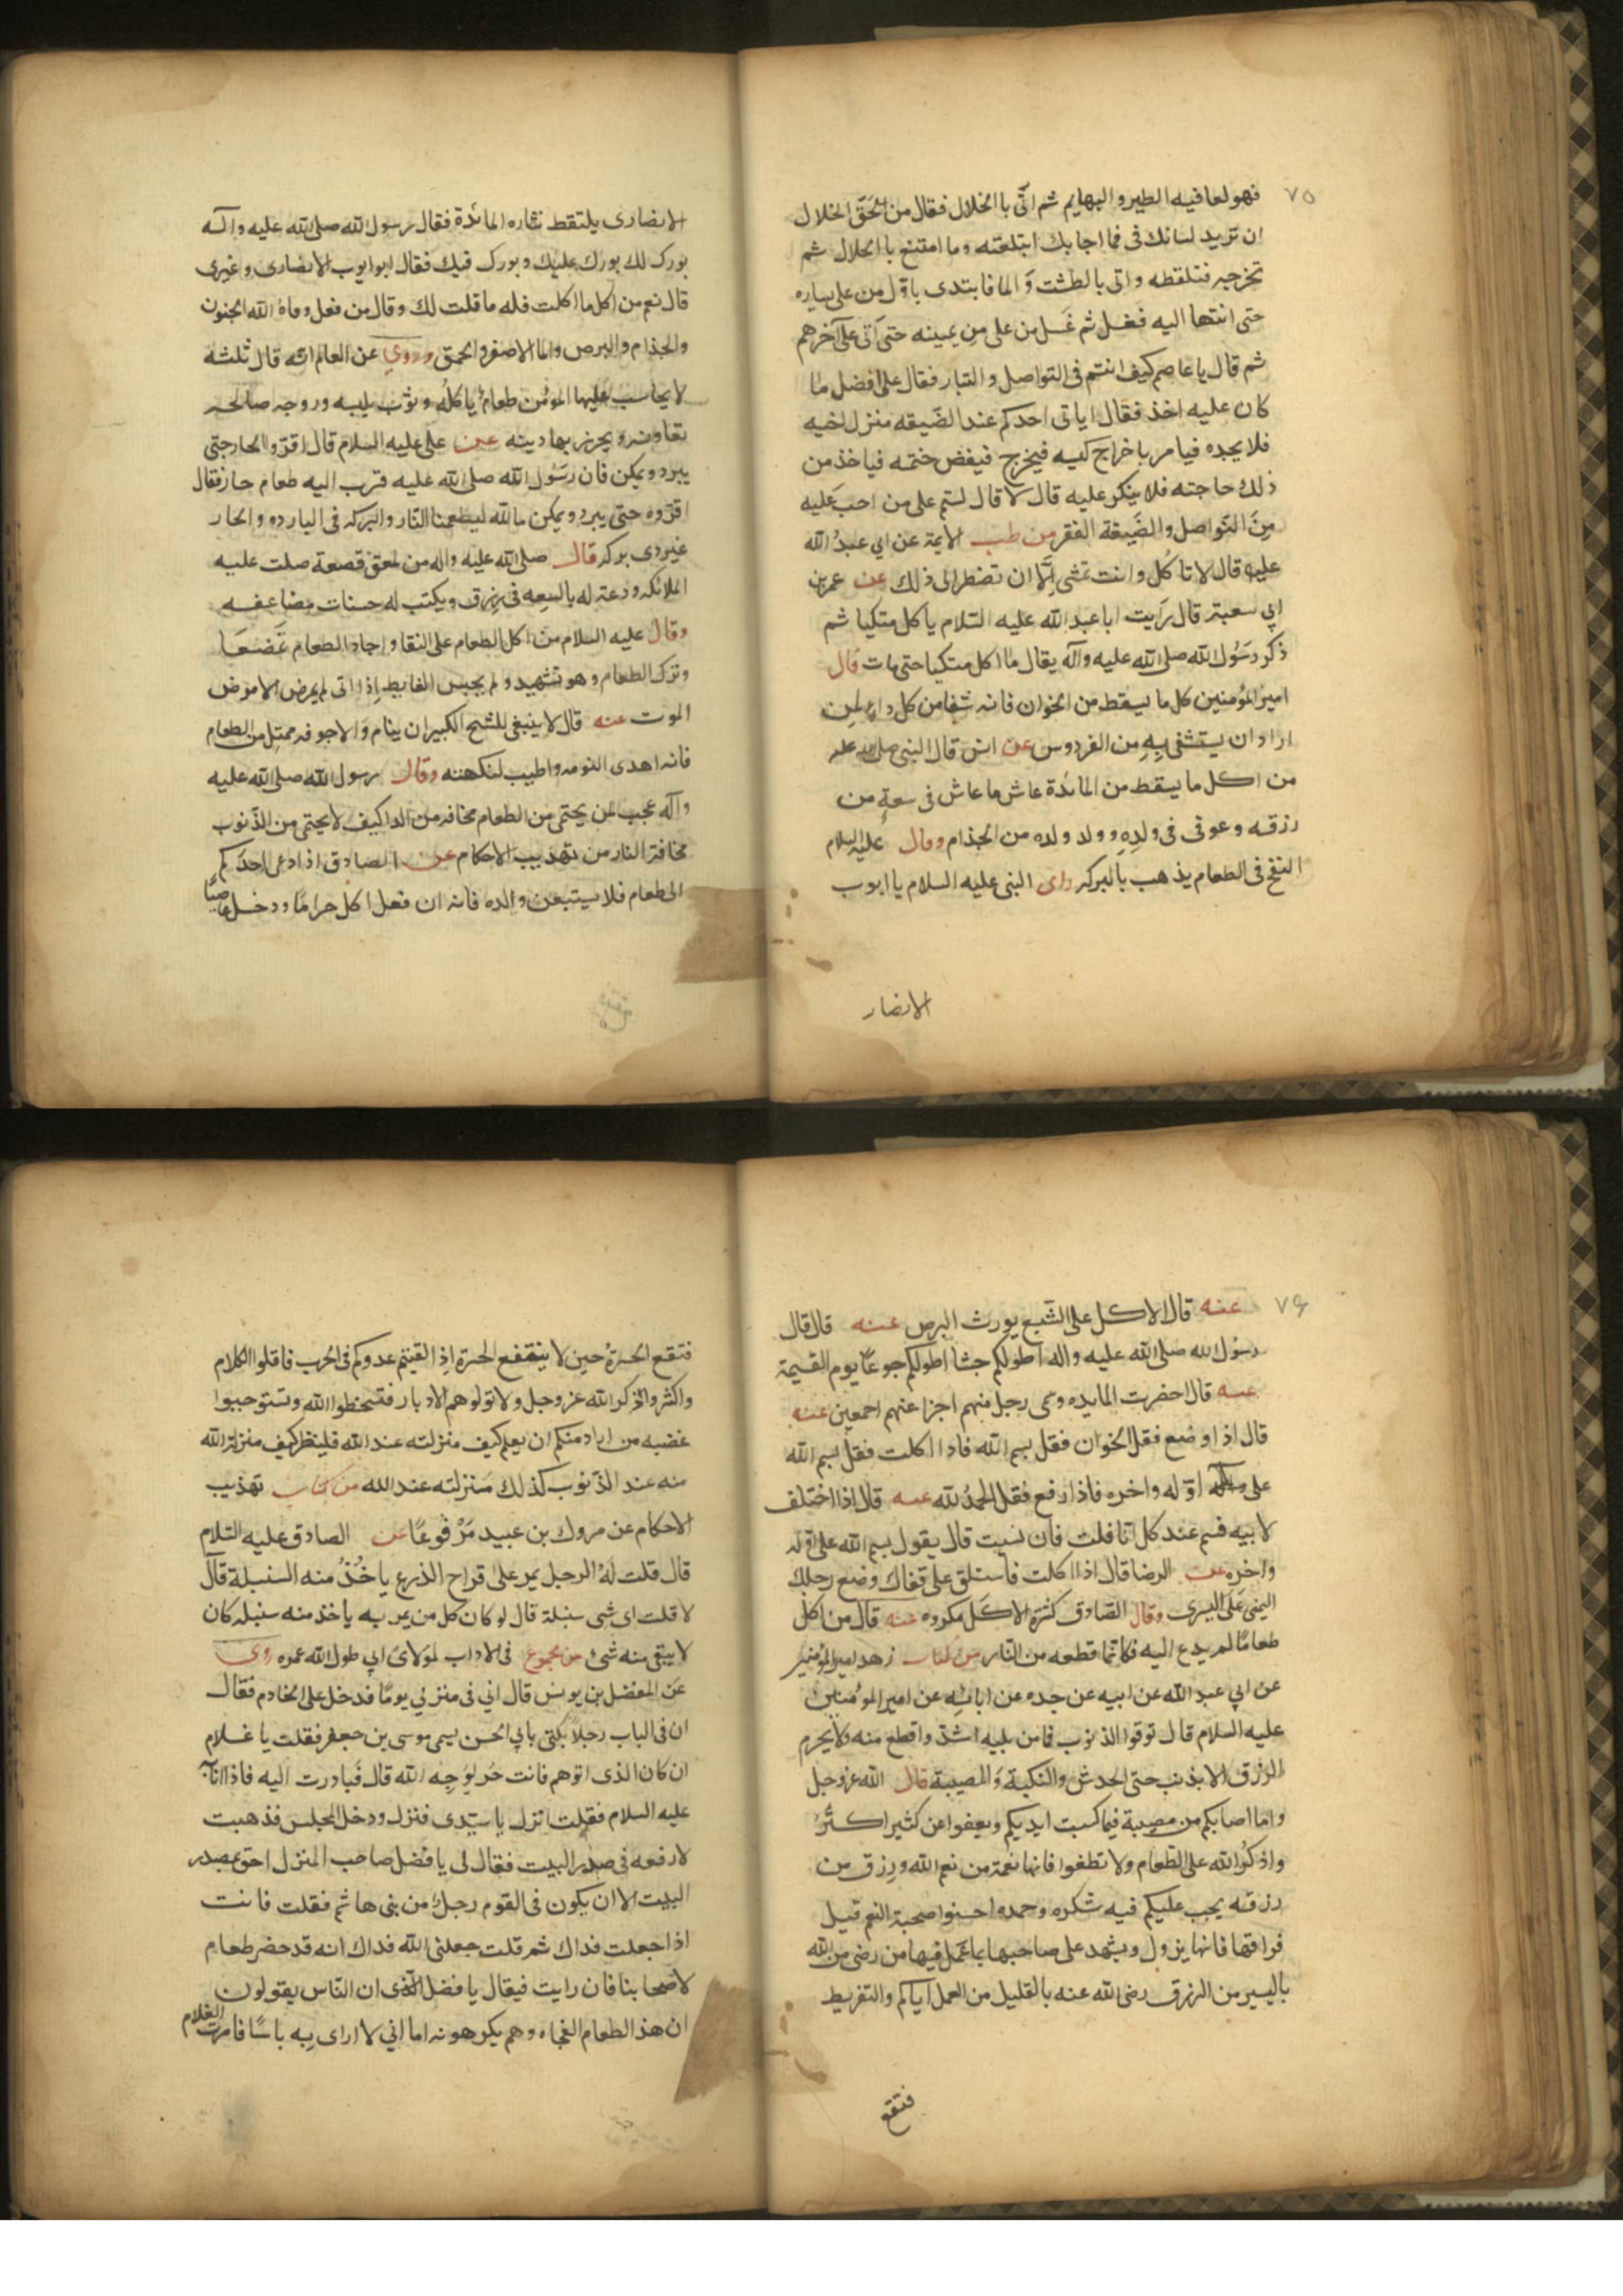 ٧٥
فهو لعافيه الطير والبهايم ثم اتى با الخلال فقال من الحق الخلال
ان تزيد لسانك فى فما اجابك ابتلعته وما امتنع با الخلال ثم
تخرجه فتلقطه واتى بالطشت وَ الما فابتدى باوّل من على يساره
حتى انتها اليه فغسل ثم غَسل من على من يمينه حتى اتى على آخرهم
ثم قال يا عاصم كيف انتم فى التواصل و التبار فقال على افضل ما
كان عليه اخذ فقال اياتى احدكم عند الضَيقه منزل اخيه
فلا يجده فيامر باخراج كيسه فيخرج فيفض ختمه فياخذ من
ذلك حاجته فلا ينكر عليه قال لا قال لستم على من احب عَليه
مِنَ التواصل والضَيقة الفقر من طب الايمة عن ابي عبدُ الله
عليه قال لا تا كُل وانت تمشى اِلّا ان تضطر الى ذلك عن عمر بن
ابي سعبة قال رَايت ابا عبد الله عليه السّلام ياكل متكيا ثم
ذكر رسَوُل الله صلى الله عليه وآله يقال ما اكل متكيا حتى مات قال
امير المؤمنين كل ما يسقط من الخوان فانه شفا من كل داء لمن
اراد ان يستشفى بِهِ مِن الفردوس عن انس قال النبى صلى الله عليه
من اكل ما يسقط من المائدة عاش ما عاش فى سعةٍ من
رزقه وعوفى فى ولدِهِ وولد ولده من الجذام وقال عليه السلام
النفخ فى الطعام يذهب بالبركه راى النبى عليه السلام يا ابوب
الانصار
الانصارى يلتقط نثاره المائدة فقال رسول الله صلى الله عليه وآله
بورك لك بورك عليك وبورك فيك فقال ابو ايوب الانصارى وغيرى
قال نعم من اكل ما اكلت فله ما قلت لك وقال من فعل وقاهُ الله الجنون
والجذام والبرص والما الاصفر والحمق وروي عن العالم انّه قال ثلثه
لا يحاسب عَليها المؤمن طعامٌ ياكله وثوب يلبسه وزوجه صالحه
تعاونه ويحرز بها دينه عن على عليه السلام قال اقرّوا الحار حتى
يبرد ويمكن فان رسَوُل الله صلى الله عليه قرب اليه طعام حار فقال
اقرّوه حتى يبرد ويمكن ما الله ليطعمنا النّار والبركه فى البارد و الحار
غير ذى بركه قال صلى الله عليه واله من لعق قصعة صلت عليه
الملائكه ودعت له بالسعِه فى رزق ويكتب له حسنات مضاعفه
وقال عليه السلام من اكل الطعام على النقا و اجاد الطعام تمَضغَا
وترك الطعام وهو تشهيد ولم يحبس الغايط اِذا اتى لم يمرض الا مرض
الموت عنه قال لا ينبغى للشيخ الكبير ان ينام وَالا جوفه ممتل من الطعام
فانه اهدى النومه واطيب لنكهته وقال رسول الله صلى الله عليه
وآله عجب لمن يحتمى من الطعام مخافه من الدا كيف لا يحتمى من الذنوب
مخافة النار من تهذيب الاحكام عن الصادق اذا دعى احدكم
الى طعام فلا يستبعن والده فانه ان فعل اكل حرامًا ودخل عاصيًا
٧٦
عنه قال الاكل على الشّبع يورث البرص عنه قال قال
رسَوُل الله صلى الله عليه واله اطولكم جشا اطولكم جوعًا يوم القيمة
عنه قال احضرت المايده وسمى رجل منهم اجزا عنهم اجمعين عنه
قال اذ اوضع فقل الخوان فقل بسم الله فاذا اكلت فقل بسم الله
على اوّله واخره فاذا رفع فقل الحمدُ لله عنه قال اذا اختلف
لابيه فسم عند كل انا قلت فان نسيت قال يقول بسم الله على اوّله
واخره عن الرضا قال اذا اكلت فاستلق على قفاك وضع رجلك
اليمنى عَلى اليسرى وقال الصّادق كثرة الاكَل مكروه عنه قال من اكل
طعامًا لم يدع اليه فكانما قطعه من النّار من كتاب زهد امير المؤمنين
عن ابي عبد الله عن ابيه عن جده عن ابائِه عن امير المؤمنين
عليه السلام قال توقوا الذنوب فما من بليه اشدّ واقطع منه ولا يحرم
الرزق الا بذنب حتى الخدش والنكبة وَالمصيبة قال الله عز وجل
وما اصابكم من مصيبة فيما كسبت ايديكم ويعفوا عن كثير اكثرُ
واذكرُوا الله على الطّعام ولا تطغوا فانها نعمة من نعم الله ورزق من
رزقه يجب عليكم فيه شكره وحمده احسنوا صحبة النعم قبل
فراقها فانها يزول ويشهد على صاحبها بما عَمل فيها من رضى من الله
باليسير من الرزق رضى الله عنه بالقليل من العمل اياكم والتفريط
فتقع
فتقع الحَسرةُ حين لا ينقفع الحسرة اِذ القيتم عدوكم فى الحرب فاقلوا الكلام
واكثروا الذكر الله عز وجل ولا تولوهم الادبار فتسخطوا الله وتستوجبوا
غضبه من اراد منكم ان يعلم كيف منزلته عند الله فلينظر كيف منزلة الله
منه عند الذّنوب كذلك مَنزلته عند الله من كتاب تهذيب
الاحكام عن مروك بن عبيد مَرْفُوعًا عن الصادق عليه السّلام
قال قلت لهُ الرجل يمر على قراح الذرع ياخُذُ منه السنبلة قالَ
لا قلت اى شى سنبلة قال لو كان كل من يمر به ياخذ منه سنبله كان
لا يبقى منه شئ من مجموع فى الاداب لمولاىَ ابي طول الله عمره روى
عن المفضل بن يونس قال اني فى منزلي يومًا فدخل على الخادم فقال
ان فى الباب رجلاً يكنّى بابي الحسن يسمى موسى بن جعفر فقلت يا غلام
ان كان الذى اتوهم فانت حُر لوَجِه الله قال فَبادرت اليه فاذا انا به
عليه السلام فقلت انزل يا سيّدى فنزل ودخل المجلس فذهبت
لارفعه فى صدر البيت فقال لى يا فضل صاحب المنزل احق بصدر
البيت الا ان يكون فى القوم رجلٌ من بنى هاشم فقلت فانت
اذا جعلت فداك ثم قلت جعلنى الله فداك انه قد حضر طعام
لاصحابنا فان رايت فيقال يا فضل الّذى ان النّاس يقولون
ان هذ الطعام الفجاه وهم يكرهونه اما اني لا ارى بِه باسًا فامرت الغلام